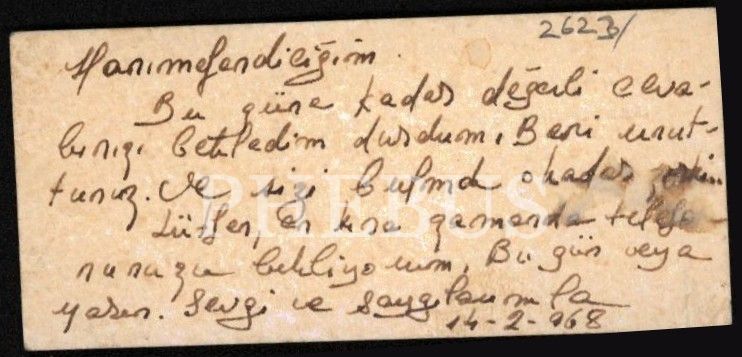 2623/
Hanımefendiciğim.
Bu güne kadar değerli ceva-
bınızı bekledim durdum. Beni unut-
tunuz. Ve sizi bulmda okadar
Lütfen, en kısa zamanda telefo-
nunuzu bekliyorum. Bu gün veya
yarın. Sevgi ve saygılarımla
14-2-968
PHEBUS